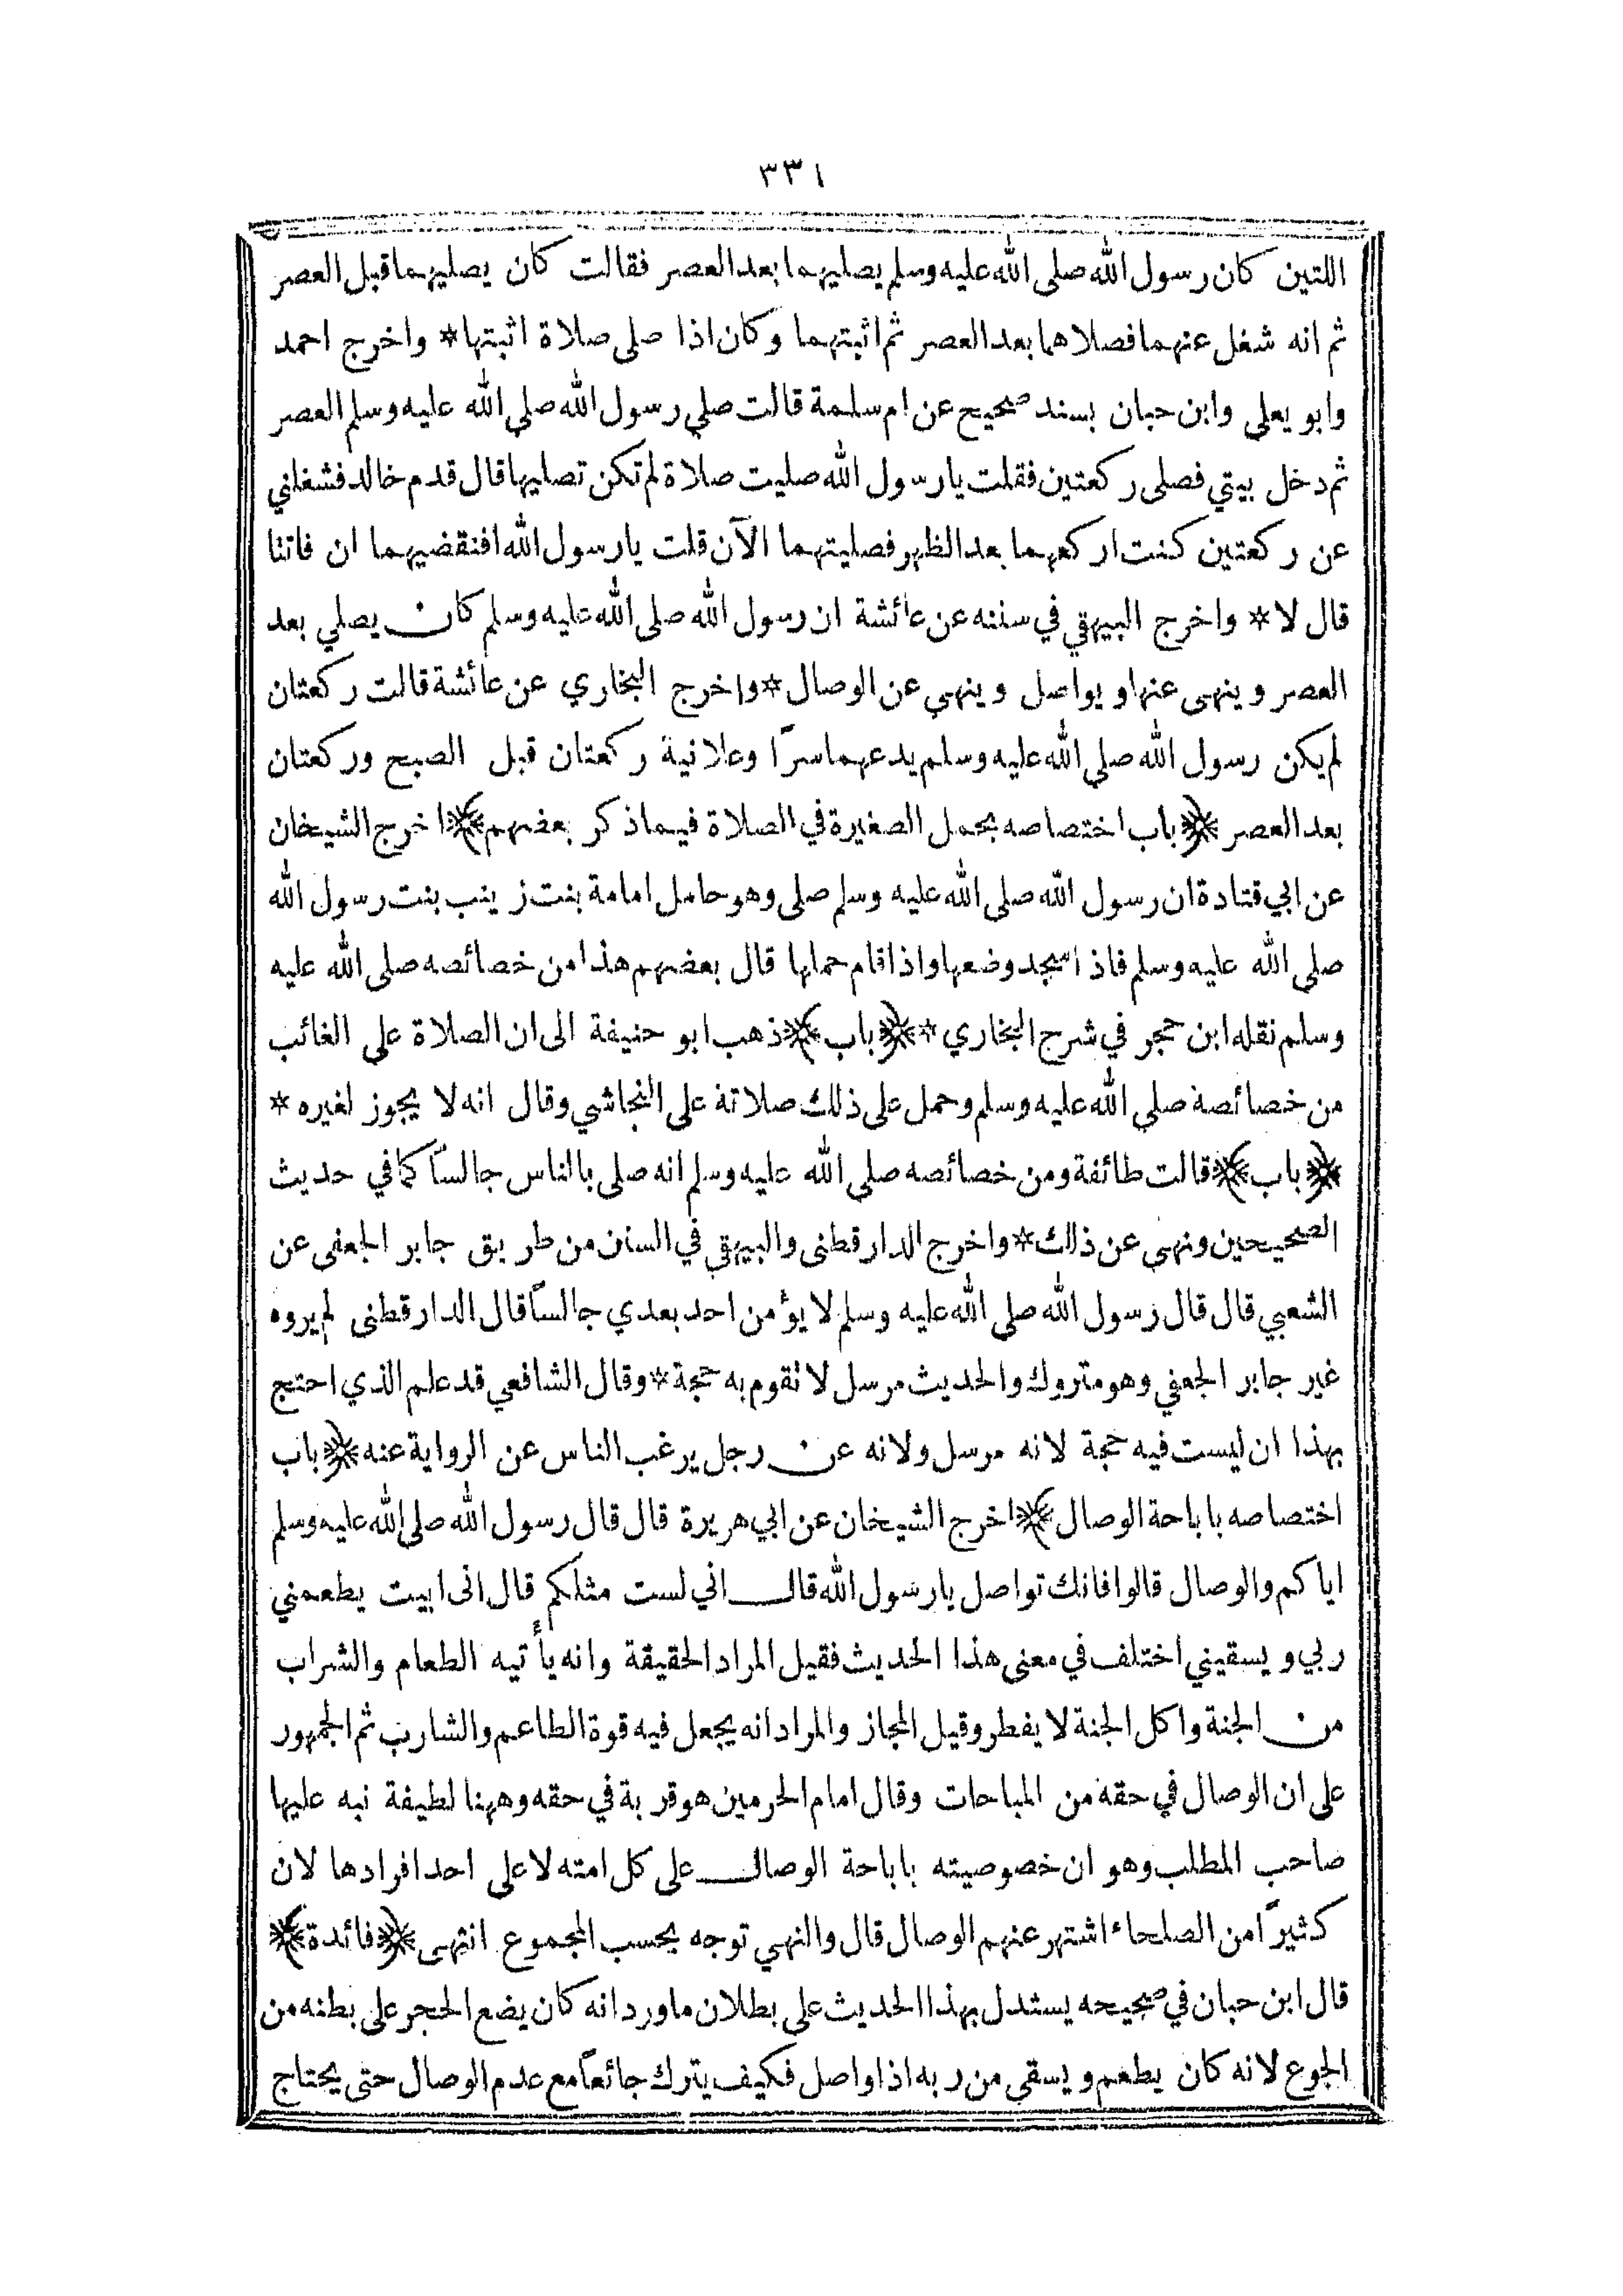 ٣٣١
اللتين كان رسول الله صلى الله عليه وسلم يصليهما بعد العصر فقالت كان يصليهما قبل العصر
ثم انه شغل عنهما فصلاهما بعد العصر ثم اثبتهما وكان اذا صلى صلاة اثبتها* واخرج احمد
وابو يعلى وابن حبان بسند صحيح عن ام سلمة قالت صلى رسول الله صلى الله عليه وسلم العصر
ثم دخل بيتي فصلى ركعتين فقلت يارسول الله صليت صلاة لم تكن تصليها قال قدم خالد فشغلني
عن ركعتين كنت اركعهما بعد الظهر فصليتهما الآن قلت يارسول الله افنقضيهما ان فاتتا
قال لا* واخرج البيهقي في سننه عن عائشة ان رسول الله صلى الله عليه وسلم كان يصلي بعد
العصر وينهى عنها ويواصل وينهى عن الوصال* واخرج البخاري عن عائشة قالت ركعتان
لم يكن رسول الله صلى الله عليه وسلم يدعهما سرًا وعلانية ركعتان قبل الصبح وركعتان
بعد العصر ﴿باب اختصاصه بحمل الصغيرة في الصلاة فيما ذكر بعضهم﴾ اخرج الشيخان
عن ابي قتادة ان رسول الله صلى الله عليه وسلم صلى وهو حامل امامة بنت زينب بنت رسول الله
صلى الله عليه وسلم فاذا سجد وضعها واذا قام حملها قال بعضهم هذا من خصائصه صلى الله عليه
وسلم نقله ابن حجر في شرح البخاري * ﴿باب﴾ ذهب ابو حنيفة الى ان الصلاة على الغائب
من خصائصه صلى الله عليه وسلم وحمل على ذلك صلاته على النجاشي وقال انه لا يجوز لغيره *
﴿باب﴾ قالت طائفة ومن خصائصه صلى الله عليه وسلم انه صلى بالناس جالسًا كما في حديث
الصحيحين ونهى عن ذلك* واخرج الدارقطنى والبيهقي في السنن من طريق جابر الجعفى عن
الشعبي قال قال رسول الله صلى الله عليه وسلم لا يؤمن احد بعدي جالسًا قال الدارقطنى لم يروه
غير جابر الجعفي وهو متروك والحديث مرسل لا تقوم به حجة* وقال الشافعي قد علم الذي احتج
بهذا ان ليست فيه حجة لانه مرسل ولانه عن رجل يرغب الناس عن الرواية عنه ﴿باب
اختصاصه باباحة الوصال﴾ اخرج الشيخان عن ابي هريرة قال قال رسول الله صلى الله عليه وسلم
اياكم والوصال قالوا فانك تواصل يارسول الله قال اني لست مثلكم قال انى ابيت يطعمني
ربي ويسقيني اختلف في معنى هذا الحديث فقيل المراد الحقيقة وانه يأتيه الطعام والشراب
من الجنة واكل الجنة لا يفطر وقيل المجاز والمراد انه يجعل فيه قوة الطاعم والشارب ثم الجمهور
على ان الوصال في حقه من المباحات وقال امام الحرمين هو قربة في حقه وههنا لطيفة نبه عليها
صاحب المطلب وهو ان خصوصيته باباحة الوصال على كل امته لا على احد افرادها لان
كثيرًا من الصلحاء اشتهر عنهم الوصال قال والنهي توجه بحسب المجموع انتهى ﴿فائدة﴾
قال ابن حبان في صحيحه يستدل بهذا الحديث على بطلان ما ورد انه كان يضع الحجر على بطنه من
الجوع لانه كان يطعم ويسقى من ربه اذا واصل فكيف يترك جائعًا مع عدم الوصال حتى يحتاج